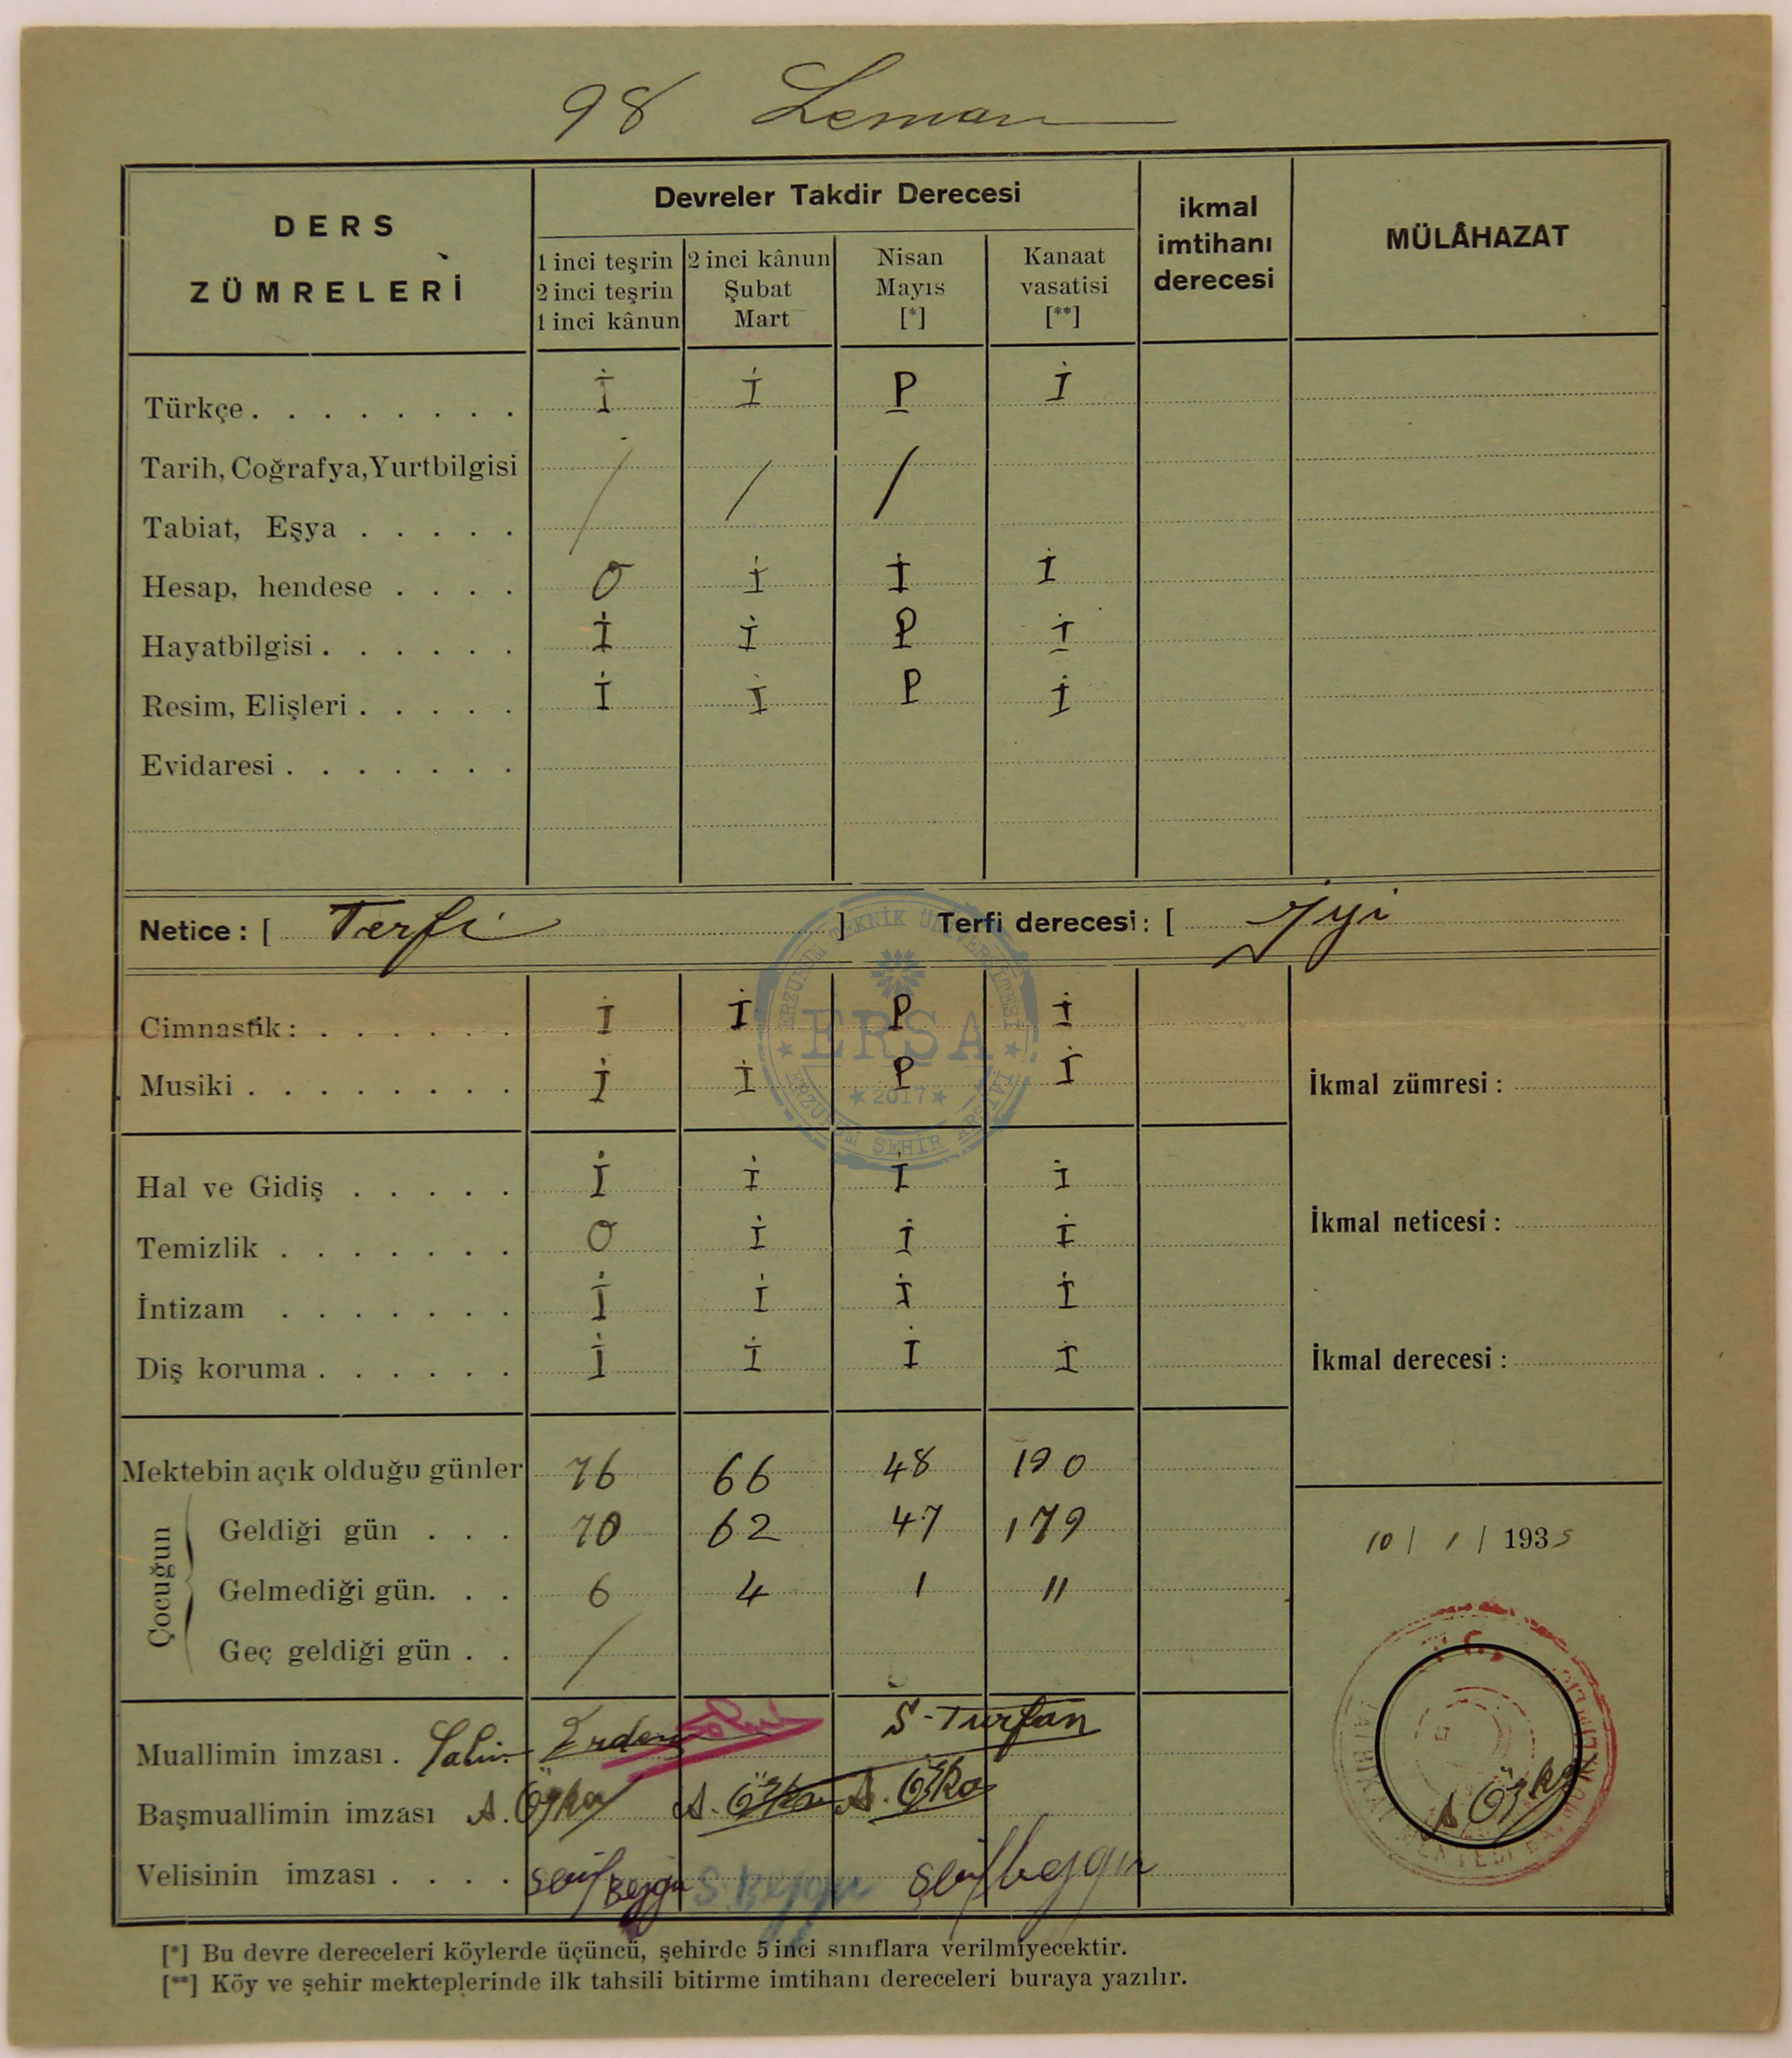 98 Leman
DERS ZÜMRELERİ
Devreler Takdir Derecesi
ikmal imtihanı derecesi
MÜLÂHAZAT
1 inci teşrin 2 inci kânun Nisan Kanaat
2 inci teşrin Şubat Mayıs vasatisi
1 inci kânun Mart [*] [**]
Türkçe . . . . . . . . İ İ P İ
Tarih, Coğrafya, Yurtbilgisi / / /
Tabiat, Eşya . . . . .
Hesap, hendese . . . . O İ İ İ
Hayatbilgisi . . . . . . İ İ P İ
Resim, Elişleri . . . . . İ İ P İ
Evidaresi . . . . . . .
Netice : [ Terfi ] Terfi derecesi : [ İyi
Cimnastik : . . . . . . İ İ P İ
Musiki . . . . . . . . İ İ P İ
İkmal zümresi :
Hal ve Gidiş . . . . . İ İ İ İ
Temizlik . . . . . . . O İ İ İ
İkmal neticesi :
İntizam . . . . . . . İ İ İ İ
Diş koruma . . . . . . İ İ İ İ
İkmal derecesi :
Mektebin açık olduğu günler 76 66 48 190
Çocuğun
Geldiği gün . . . 70 62 47 179
Gelmediği gün. . . 6 4 1 11
Geç geldiği gün . . /
10 / 1 / 1935
Muallimin imzası . Erden S-Turfan
Başmuallimin imzası A. Özka A. Özka A. Özka
A Özka
Velisinin imzası . . . . Şerif Bezgin S. Bezgin Şerif bezgin
[*] Bu devre dereceleri köylerde üçüncü, şehirde 5 inci sınıflara verilmiyecektir.
[**] Köy ve şehir mekteplerinde ilk tahsili bitirme imtihanı dereceleri buraya yazılır.
ERZURUM TEKNİK ÜNİVERSİTESİ
ERSA
2017
ERZURUM ŞEHİR ARŞİVİ